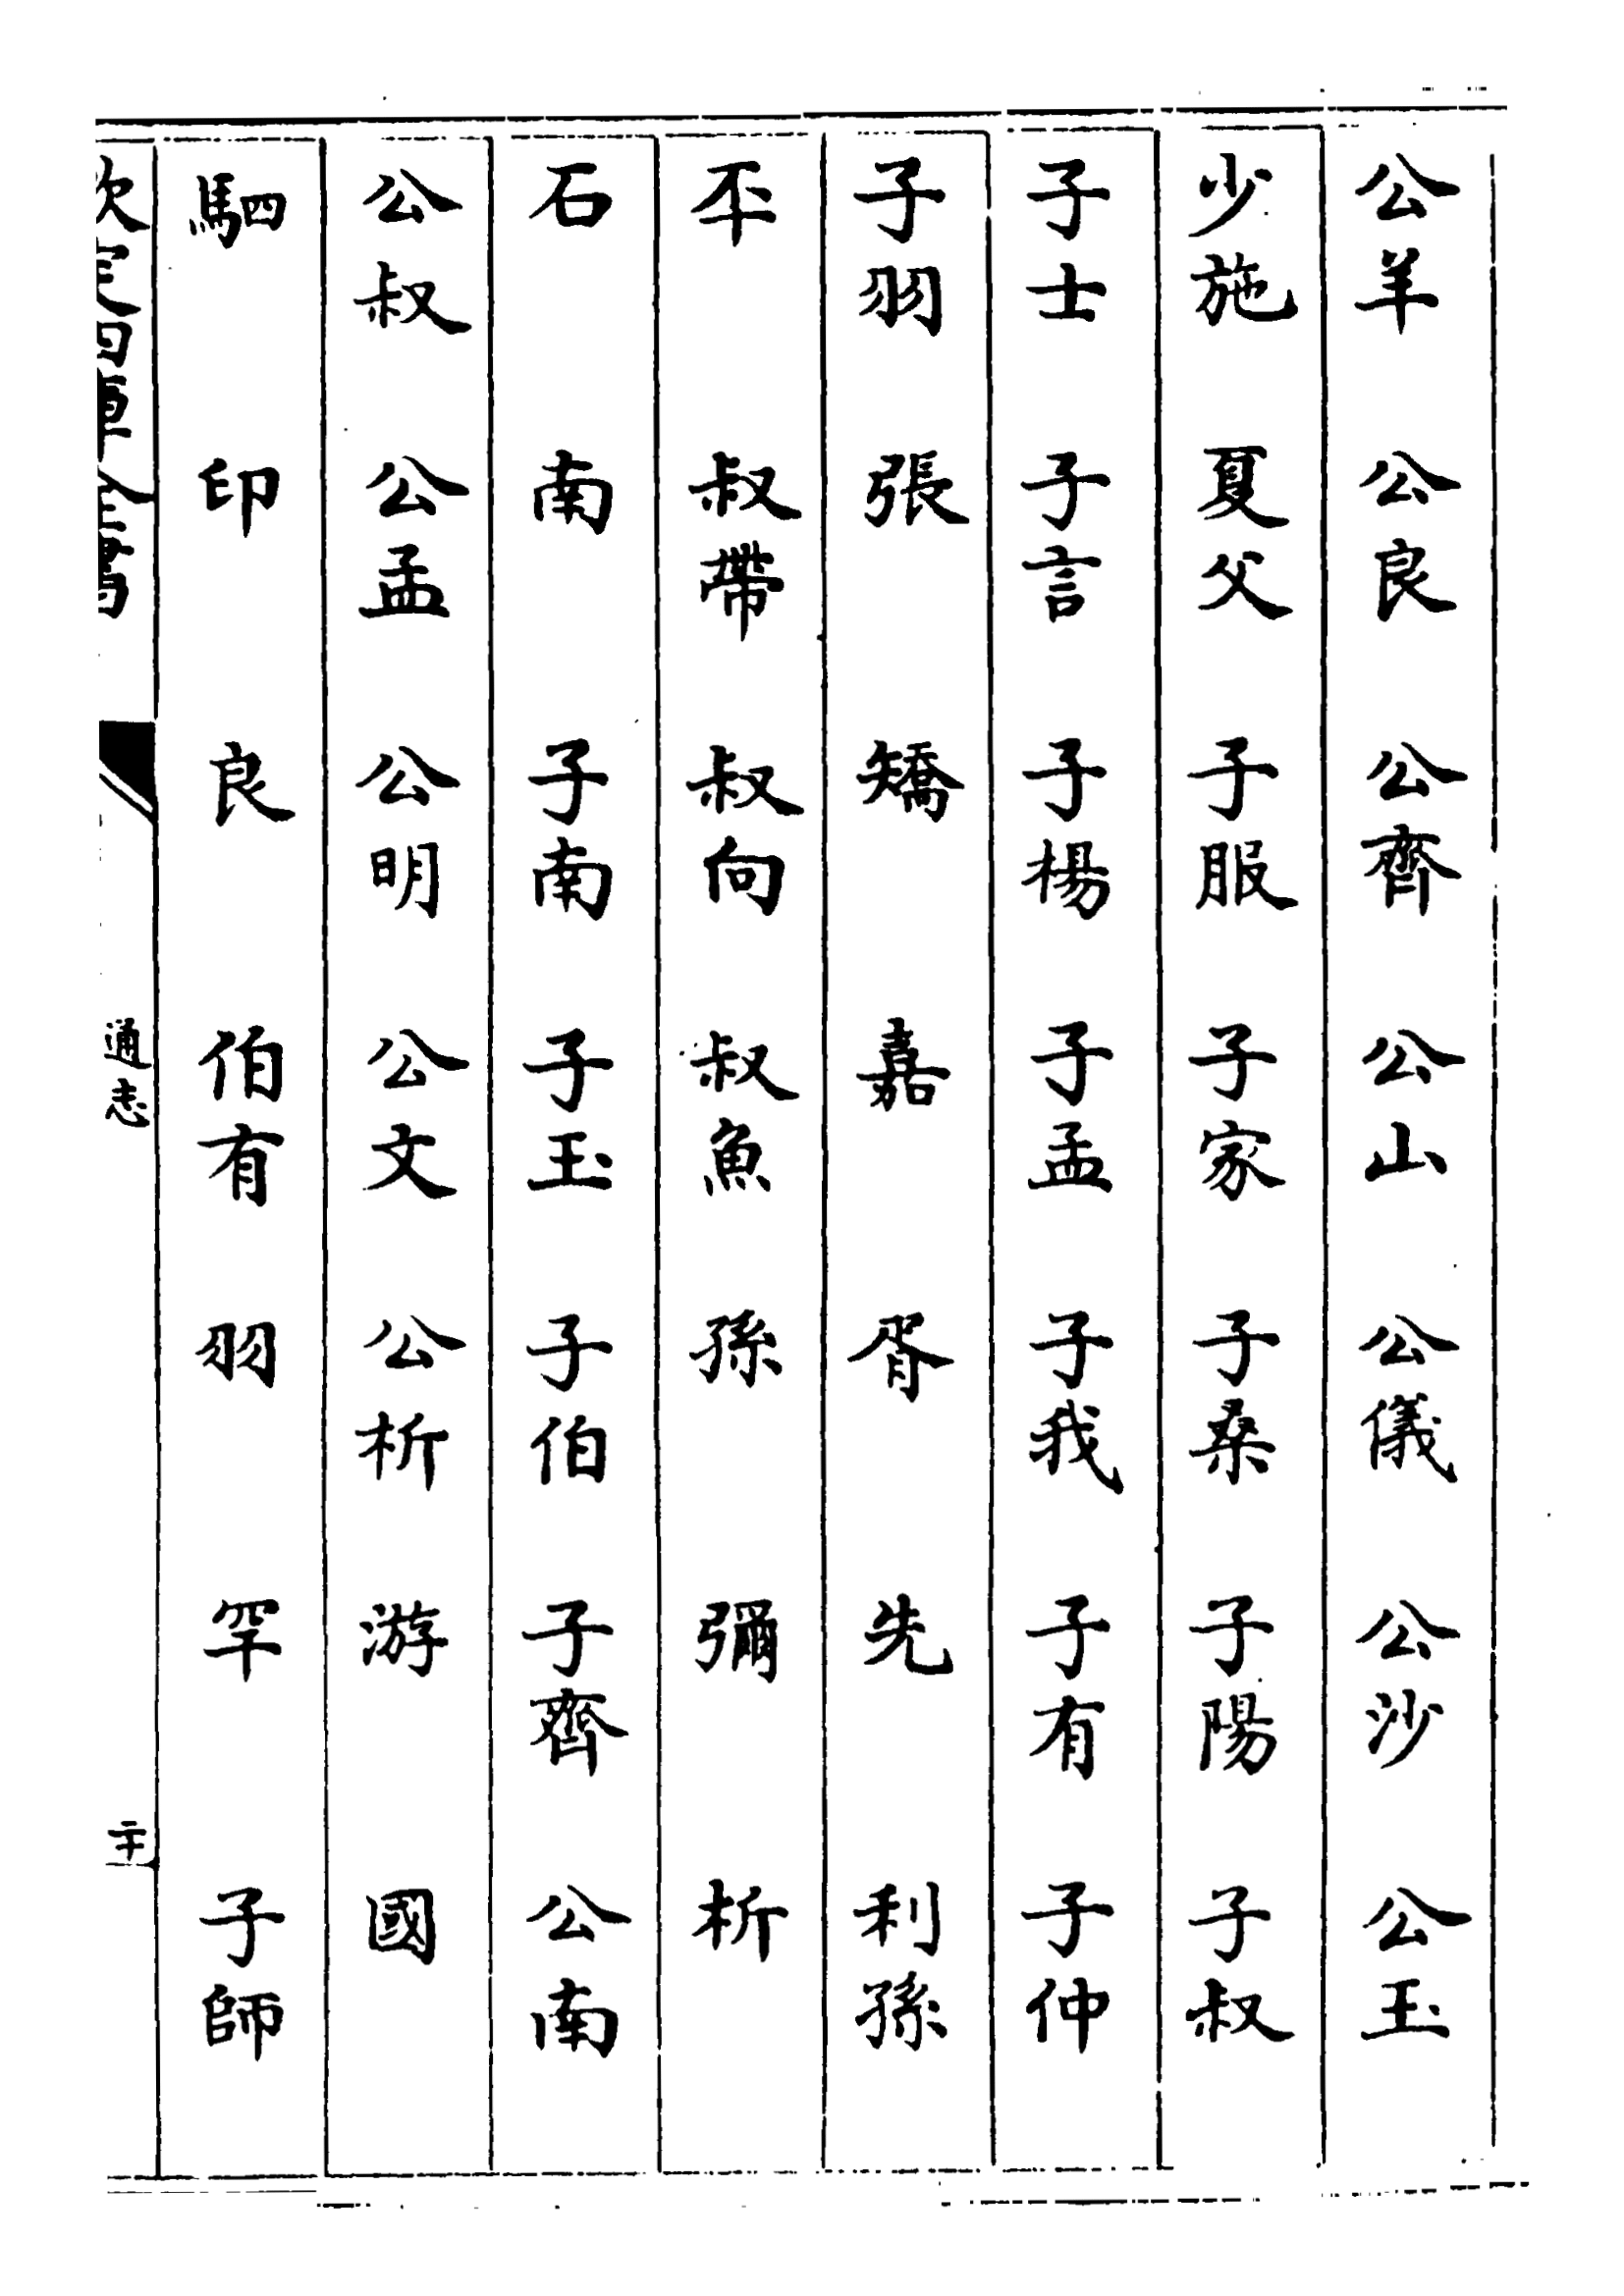 公羊 公良 公齊 公山 公儀 公沙 公玉
少施 夏父 子服 子家 子桑 子陽 子叔
子士 子言 子楊 子孟 子我 子有 子仲
子羽 張 矯 嘉 胥 先 利孫
㔻 叔帶 叔向 叔魚 孫 彌 析
石 南 子南 子玉 子伯 子齊 公南
公叔 公孟 公明 公文 公析 游 國
駟 印 良 伯有 羽 罕 子師
欽定四庫全書 通志 二十